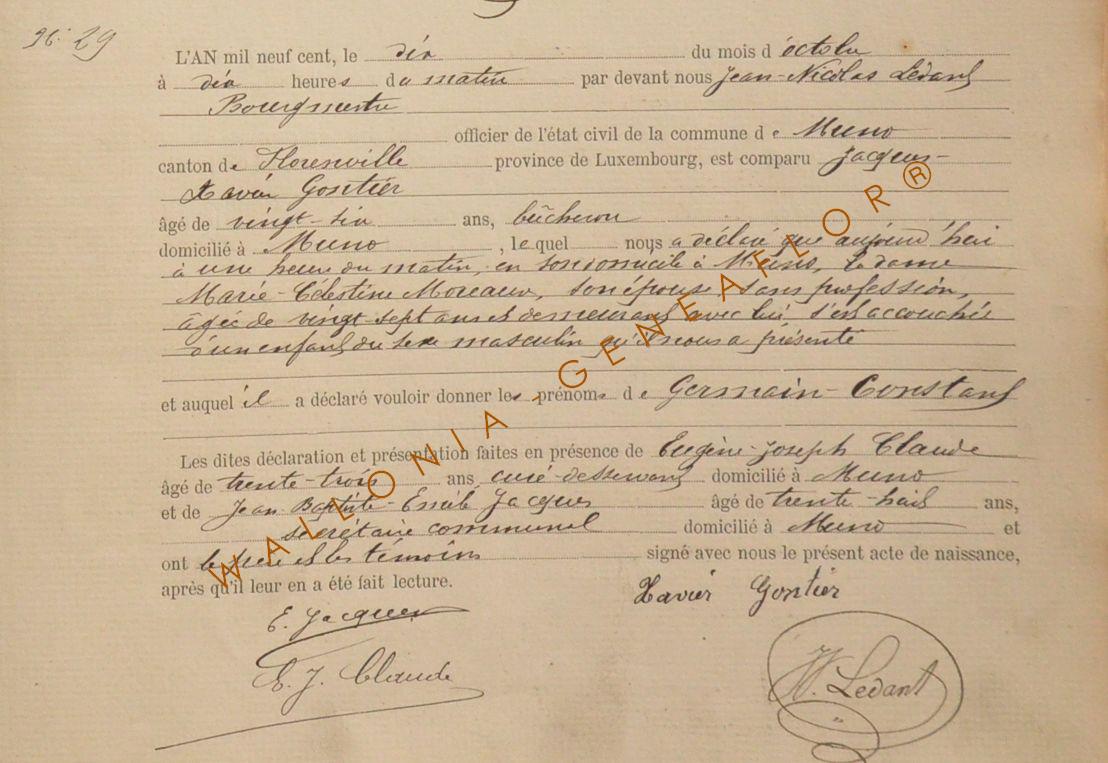 N° 29
L'AN mil neuf cent, le dix du mois d'octobre
à dix heures du matin par devant nous Jean-Nicolas Ledant
Bourgmestre
officier de l'état civil de la commune de Muno
canton de Florenville province de Luxembourg, est comparu Jacques-
Xavier Gontier
âgé de vingt-six ans, bûcheron
domicilié à Muno, lequel nous a déclaré que aujourd'hui
à une heure du matin, en son domicile à Muno, la dame
Marie-Célestine Moreaux, son épouse sans profession,
âgée de vingt-sept ans et demeurant avec lui s'est accouchée
d'un enfant du sexe masculin qu'il nous a présenté
et auquel il a déclaré vouloir donner les prénoms de Germain-Constant
Les dites déclaration et présentation faites en présence de Eugène-Joseph Claude
âgé de trente-trois ans, curé-desservant domicilié à Muno
et de Jean Baptiste-Emile Jacques âgé de trente-huit ans,
secrétaire communal domicilié à Muno et
ont le père et les témoins signé avec nous le présent acte de naissance,
après qu'il leur en a été fait lecture.
Xavier Gontier
E. Jacques
E. J. Claude
N. Ledant
WALLONIA-GENEAFLOR®